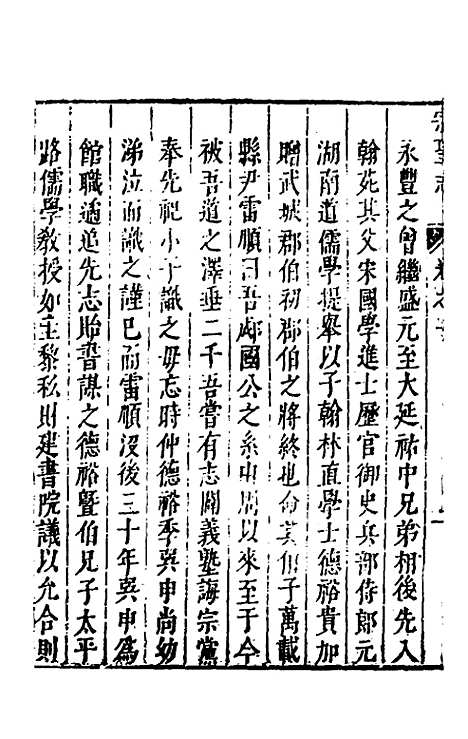 宗聖志
永豐之曾繼盛元至大延祐中兄弟相後先入
翰苑其父宋國學進士歷官御史兵部侍郎元
湖南道儒學提舉以子翰林直學士德裕貴加
贈武城郡伯初郡伯之將終也命其伯子萬載
縣尹雷順曰吾郕國公之系由周以來至于今
被吾道之澤垂二千吾嘗有志闢義塾誨宗黨
奉先祀小子識之毋忘時仲德裕季巽申尚幼
涕泣而識之謹已而雷順沒後三十年巽申為
館職適追先志貽書謀之德裕曁伯兄子太平
路儒學教授如圭黎私財建書院議以允合則